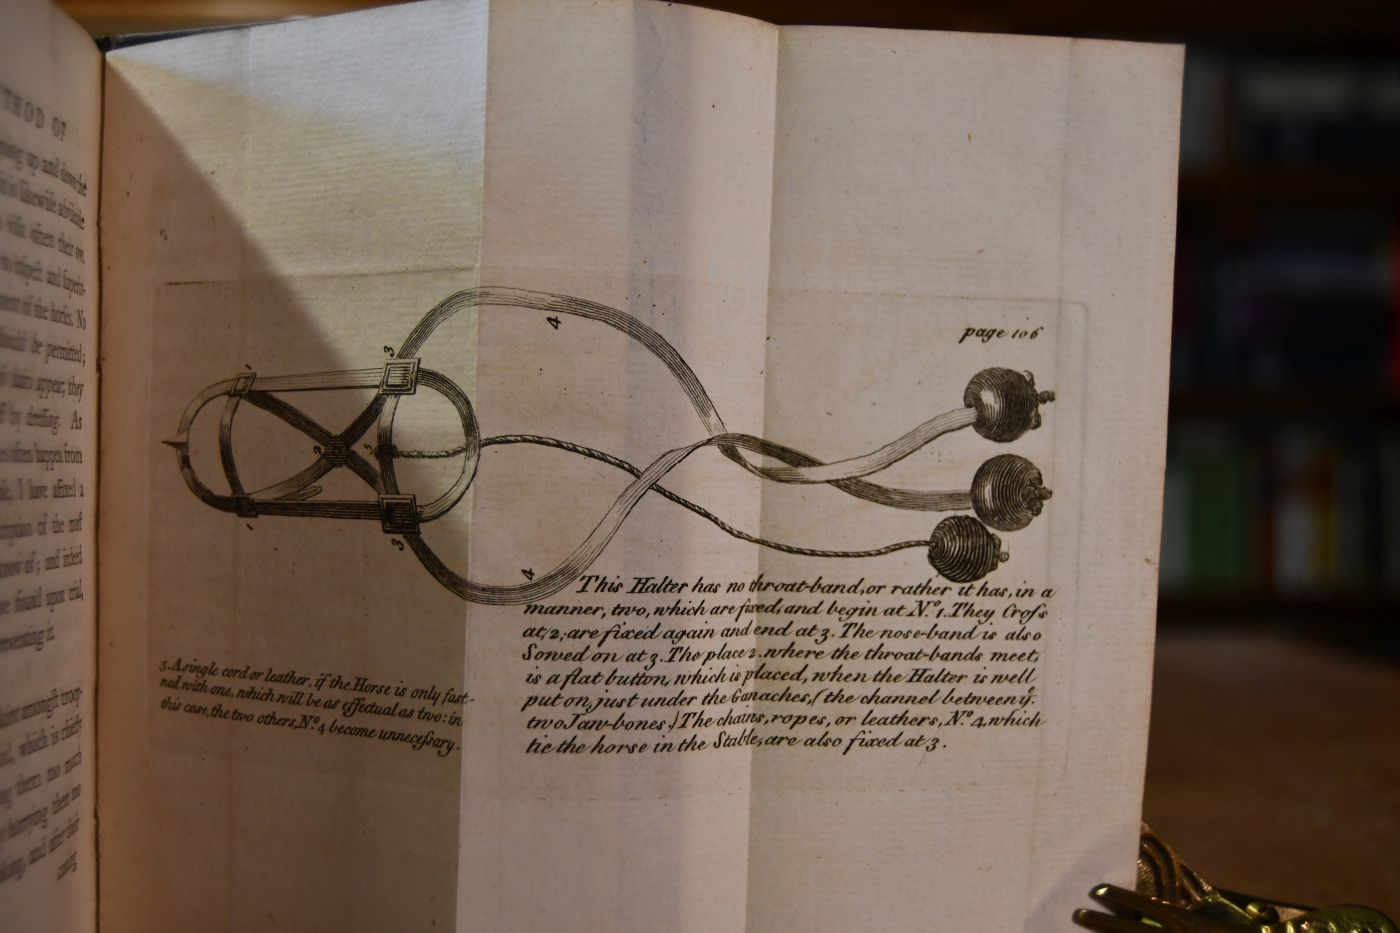 THOD OF
going up and down the
is likewise advisable
visit often their own
to inspect and superin-
ment of the horses. No
should be permitted;
hairs appear, they
by dressing. As
often happen from
I have affixed a
description of the most
know of; and indeed
have found upon trial,
presenting it.
amongst troop-
which is chiefly
them too much
hurrying them too
and after their
page 106
1
3
4
2
5
1
3
4
This Halter has no throat-band, or rather it has, in a
manner, two, which are fixed, and begin at N.º 1. They Croſs
at, 2, are fixed again and end at 3. The nose-band is also
Sowed on at 3. The place 2. where the throat-bands meet,
is a flat button, which is placed, when the Halter is well
put on, just under the Ganaches, (the channel between yͤ.
two Jaw-bones.) The chains, ropes, or leathers, N.º 4, which
tie the horse in the Stable, are also fixed at 3.
5. A single cord or leather, if the Horse is only fast-
ned with one, which will be as effectual as two: in
this case, the two others, N.º 4 become unneceſsary.